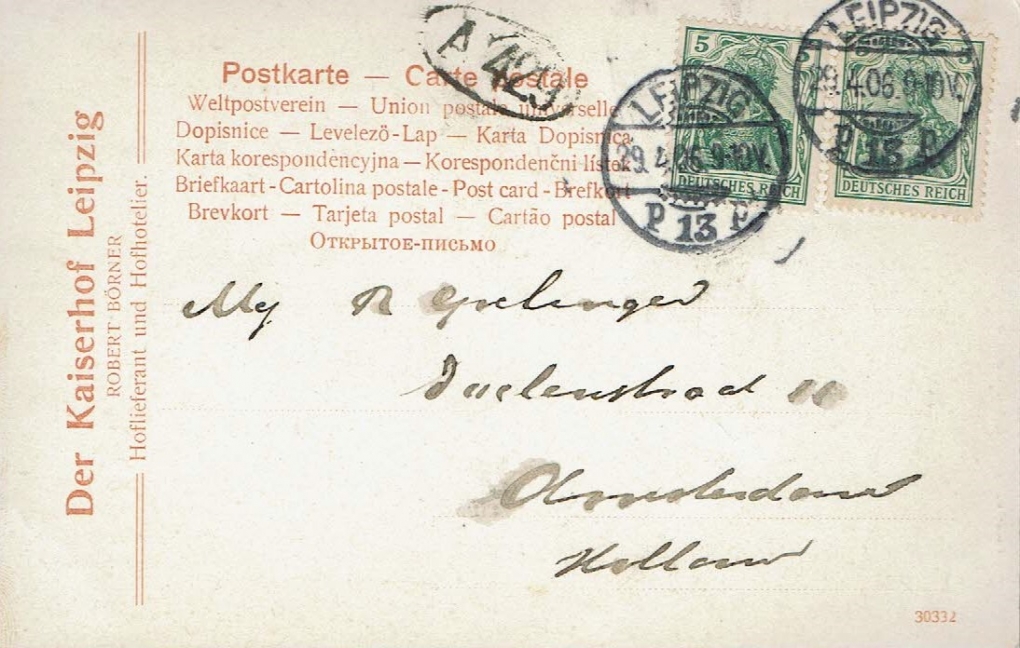 Postkarte — Carte postale
Weltpostverein — Union postale universelle
Dopisnice — Levelező-Lap — Karta Dopisnica
Karta korespondencyjna — Korespondenčni listek
Briefkaart - Cartolina postale - Post card - Brefkort
Brevkort — Tarjeta postal — Cartão postal
Открытое-письмо
A 429
5 5
DEUTSCHES REICH
5
DEUTSCHES REICH
LEIPZIG
29.4.06.9-10V.
P 13 P
LEIPZIG
29.4.06.9-10V.
P 13 P
Der Kaiserhof Leipzig
ROBERT BÖRNER
Hoflieferant und Hofhotelier.
R
Amsterdam
Holland
30332